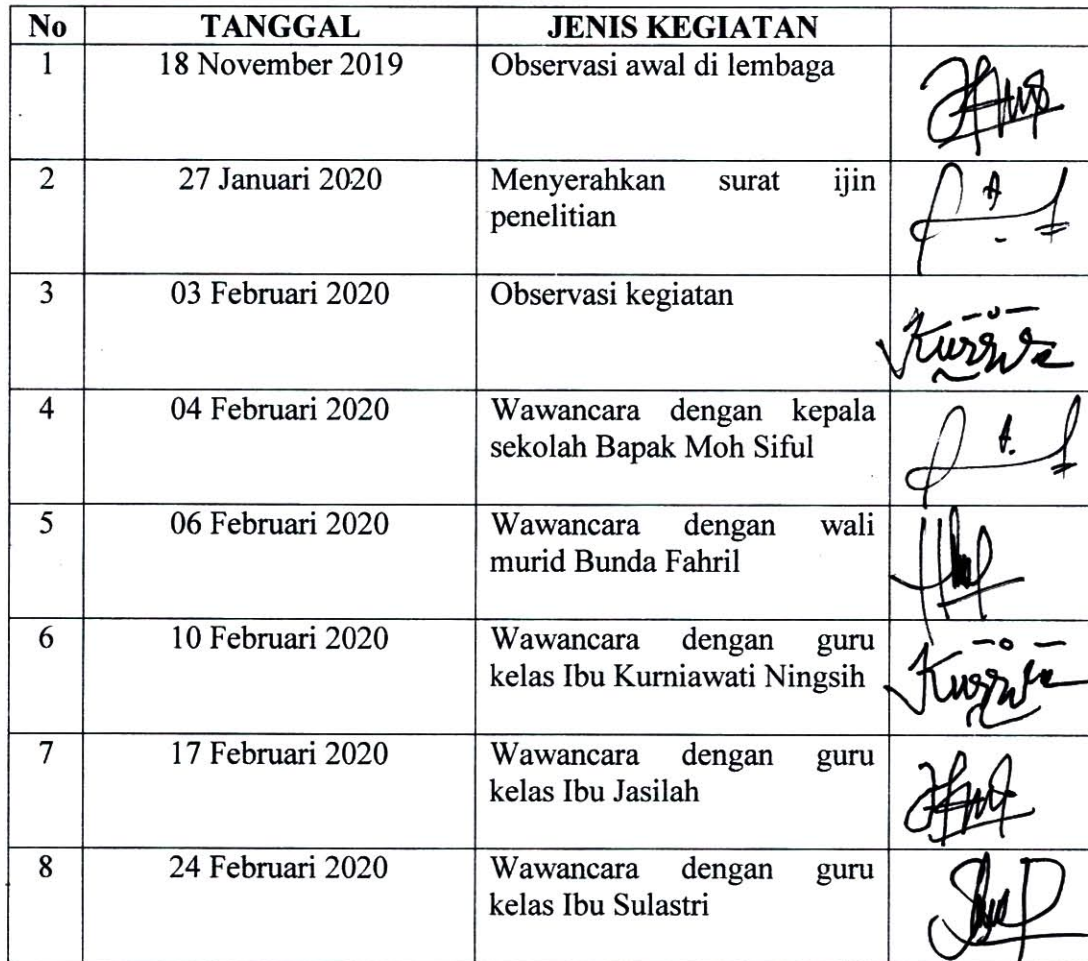 No TANGGAL JENIS KEGIATAN
1 18 November 2019 Observasi awal di lembaga
2 27 Januari 2020 Menyerahkan surat ijin
penelitian
3 03 Februari 2020 Observasi kegiatan
4 04 Februari 2020 Wawancara dengan kepala
sekolah Bapak Moh Siful
5 06 Februari 2020 Wawancara dengan wali
murid Bunda Fahril
6 10 Februari 2020 Wawancara dengan guru
kelas Ibu Kurniawati Ningsih
7 17 Februari 2020 Wawancara dengan guru
kelas Ibu Jasilah
8 24 Februari 2020 Wawancara dengan guru
kelas Ibu Sulastri